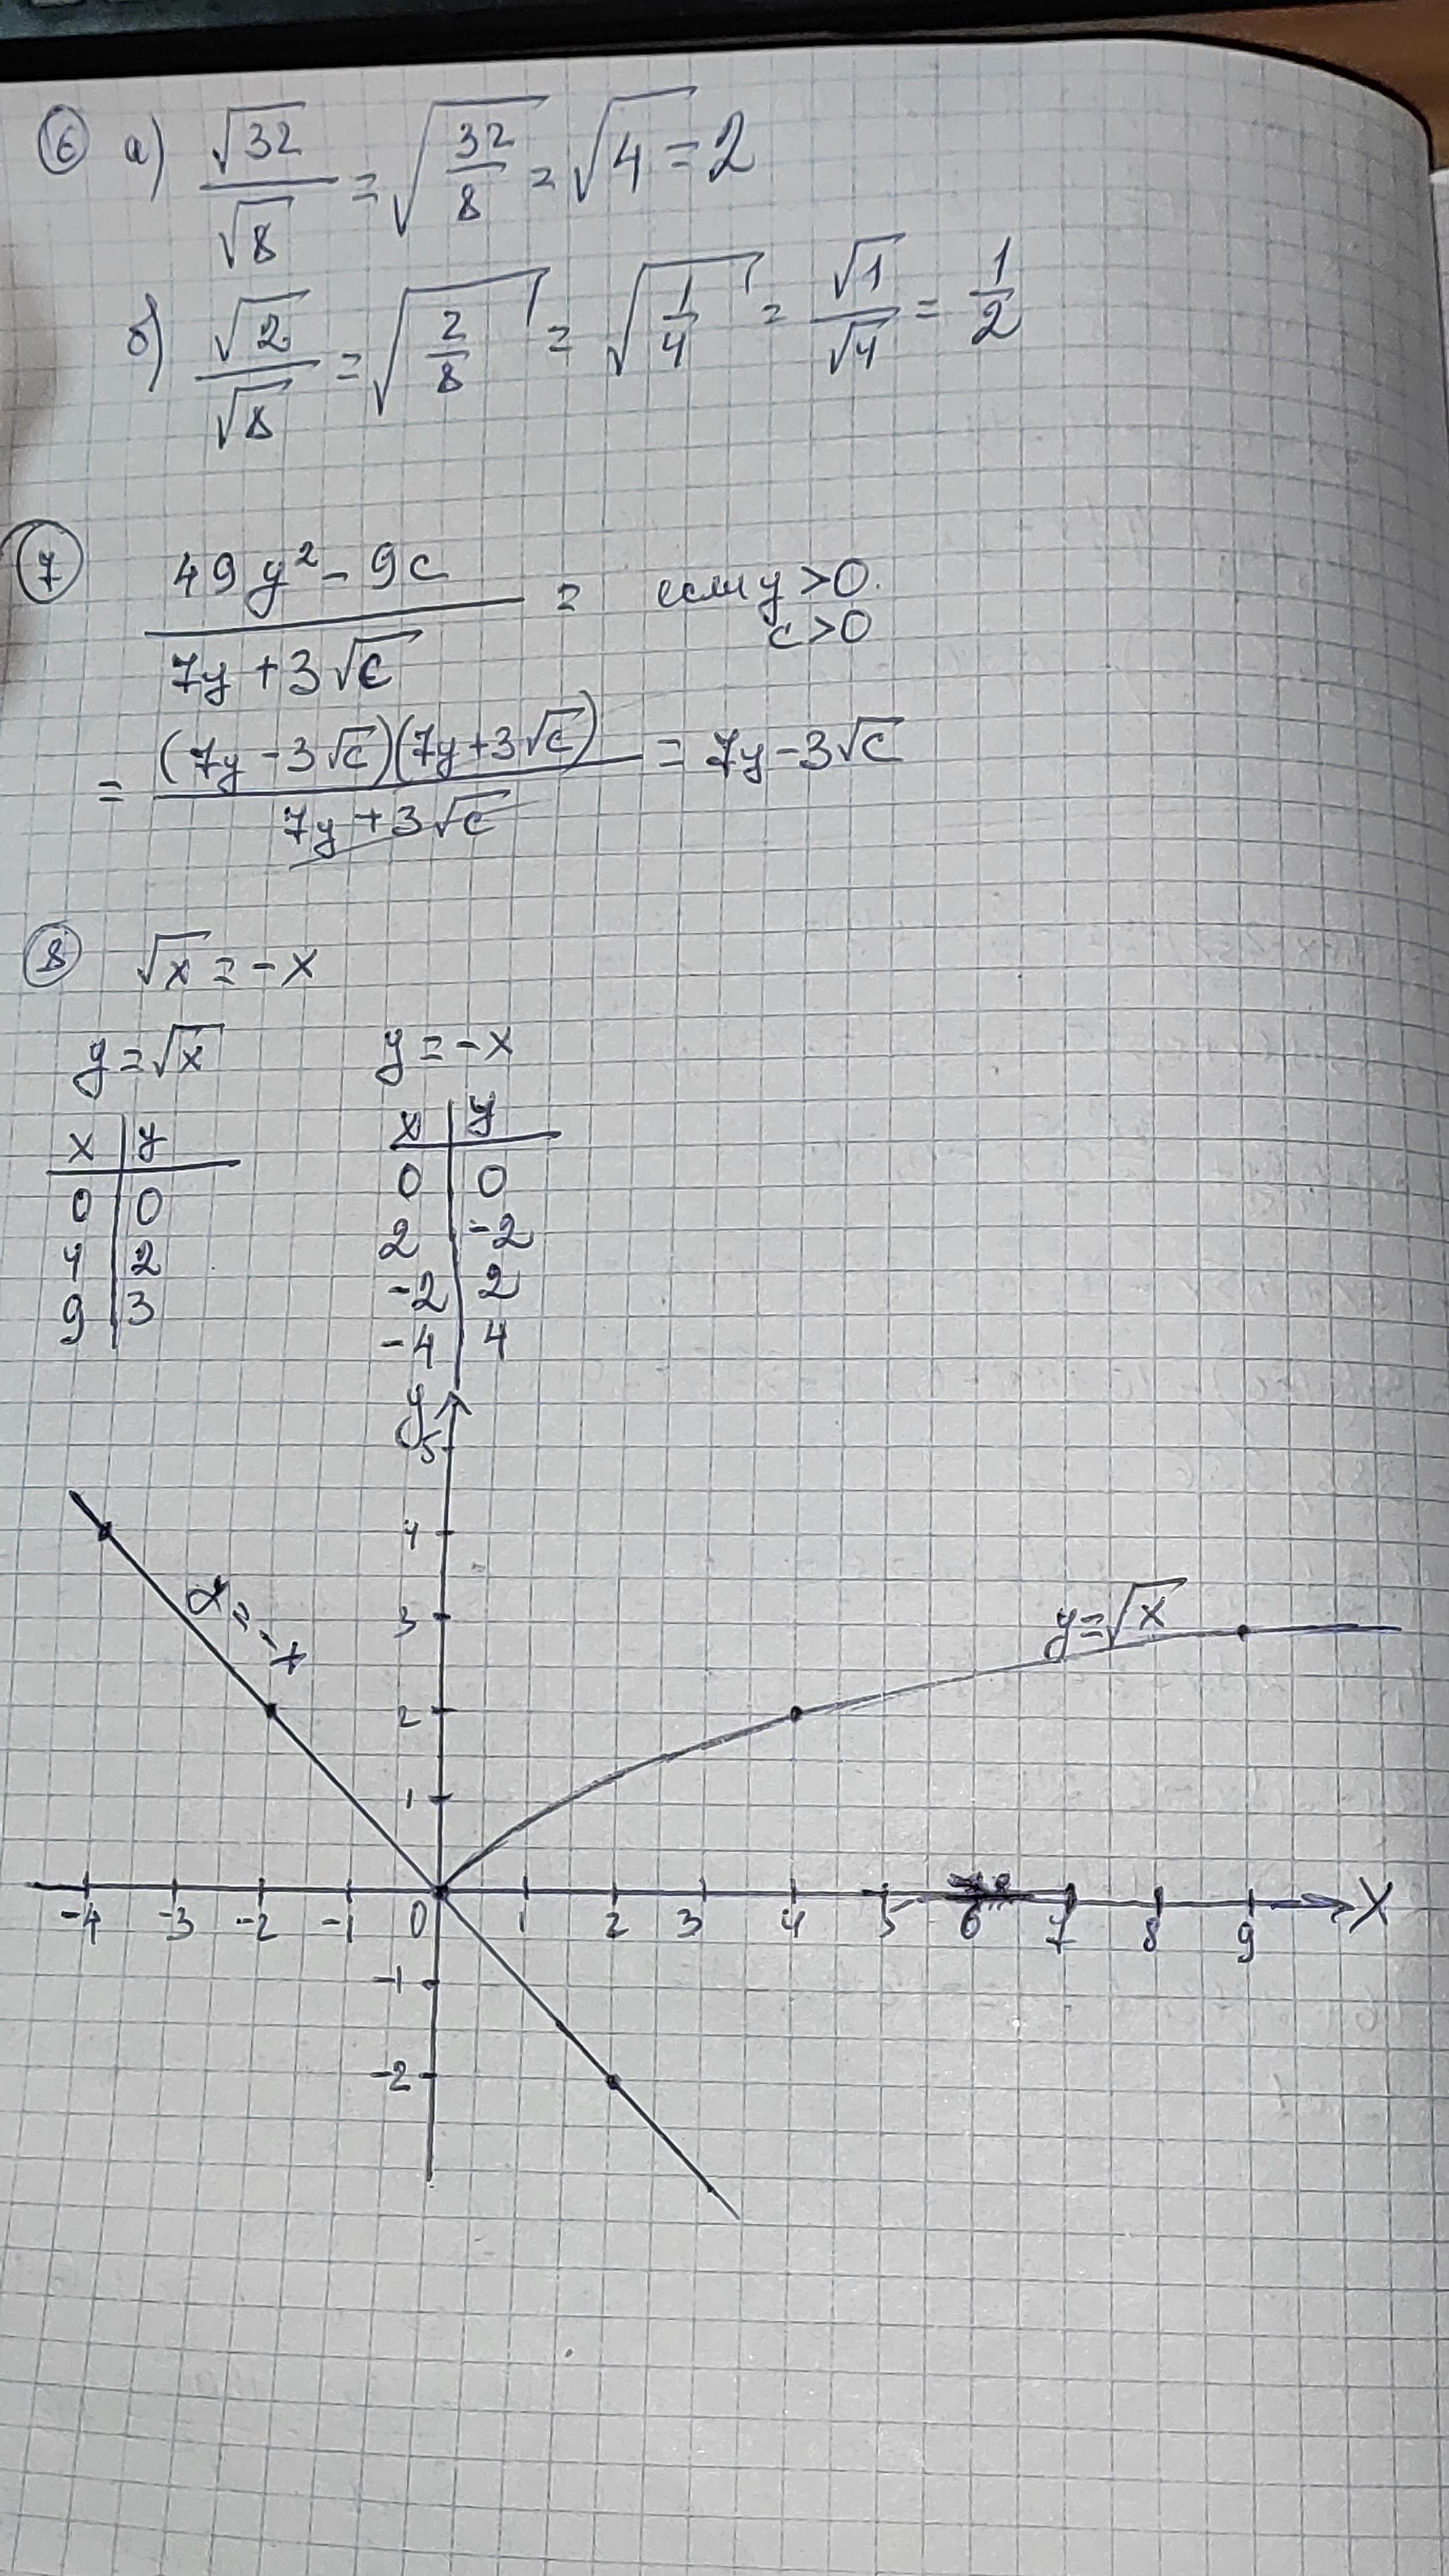 6 а) √32/√8 = √(32/8) = √4 = 2
б) √2/√8 = √(2/8) = √(1/4) = √1/√4 = 1/2
7 (49y² - 9c)/(7y + 3√c) = если y > 0.
c > 0
= (7y - 3√c)(7y + 3√c)/(7y + 3√c) = 7y - 3√c
8 √x = -x
y = √x y = -x
x y x y
0 0 0 0
4 2 2 -2
9 3 -2 2
-4 4
y
5
4
3
2
1
y = √x
-4 -3 -2 -1 0 1 2 3 4 5 6 7 8 9 X
-1
-2